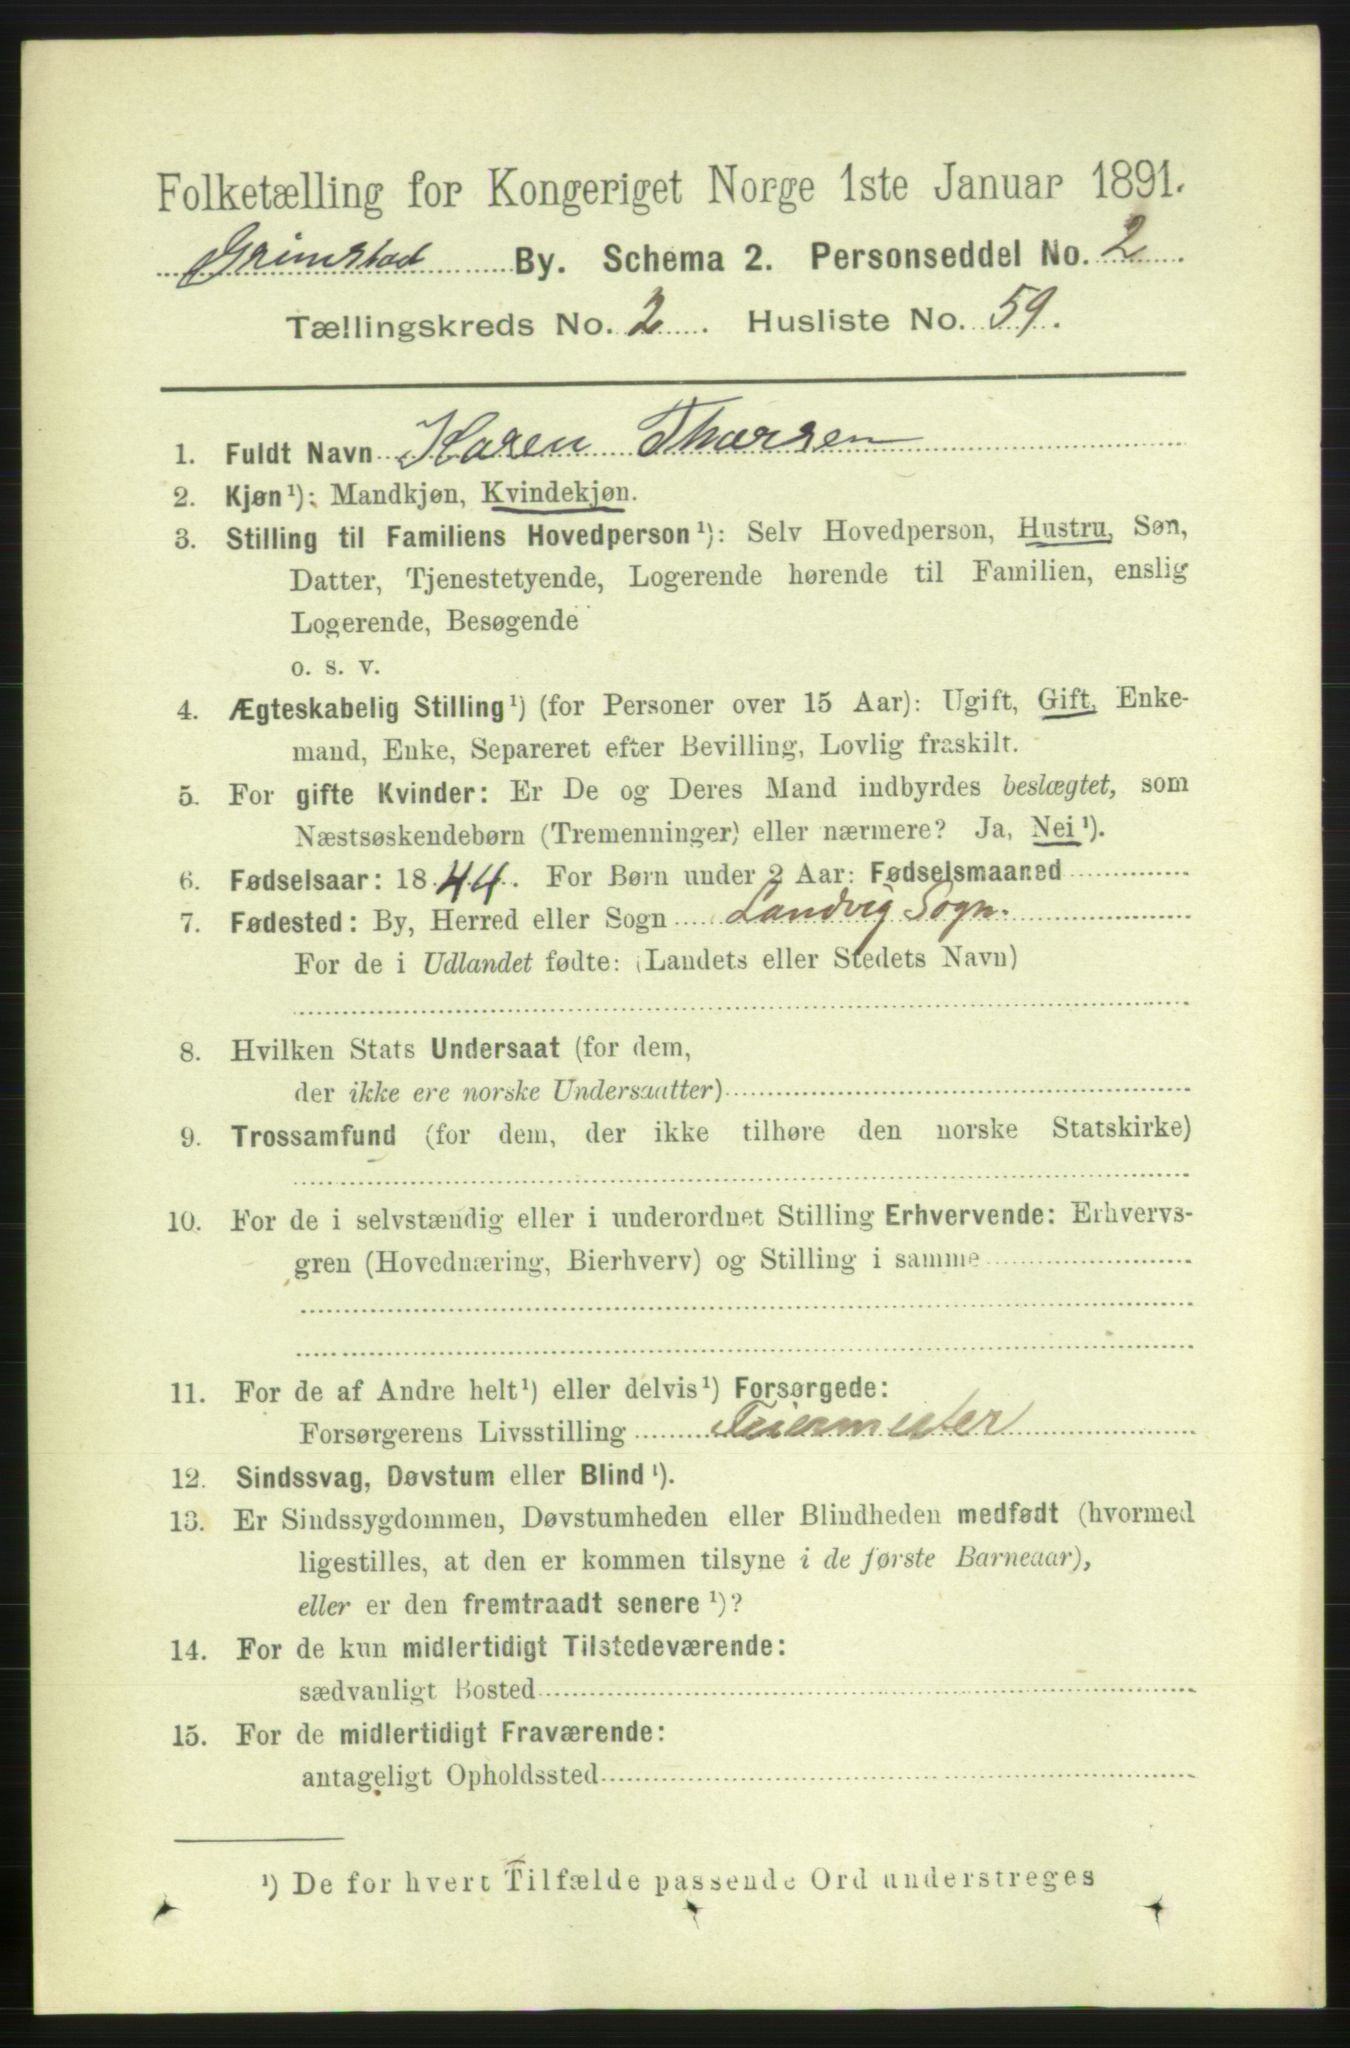 Folketælling for Kongeriget Norge 1ste Januar 1891.
Grimstad By. Schema 2. Personseddel No. 2
Tællingskreds No. 2. Husliste No. 59.
1. Fuldt Navn Karen Thorsen
2. Kjøn¹): Mandkjøn, Kvindekjøn.
3. Stilling til Familiens Hovedperson¹): Selv Hovedperson, Hustru, Søn,
Datter, Tjenestetyende, Logerende hørende til Familien, enslig
Logerende, Besøgende
o. s. v.
4. Ægteskabelig Stilling¹) (for Personer over 15 Aar): Ugift, Gift, Enke-
mand, Enke, Separeret efter Bevilling, Lovlig fraskilt.
5. For gifte Kvinder: Er De og Deres Mand indbyrdes beslægtet, som
Næstsøskendebørn (Tremenninger) eller nærmere? Ja, Nei¹).
6. Fødselsaar: 1844. For Børn under 2 Aar: Fødselsmaaned
7. Fødested: By, Herred eller Sogn Landvig Sogn.
For de i Udlandet fødte: (Landets eller Stedets Navn)
8. Hvilken Stats Undersaat (for dem,
der ikke ere norske Undersaatter)
9. Trossamfund (for dem, der ikke tilhøre den norske Statskirke)
10. For de i selvstændig eller i underordnet Stilling Erhvervende: Erhvervs-
gren (Hovednæring, Bierhverv) og Stilling i samme
11. For de af Andre helt¹) eller delvis¹) Forsørgede:
Forsørgerens Livsstilling Feiermester
12. Sindssvag, Døvstum eller Blind¹).
13. Er Sindssygdommen, Døvstumheden eller Blindheden medfødt (hvormed
ligestilles, at den er kommen tilsyne i de første Barneaar),
eller er den fremtraadt senere¹)?
14. For de kun midlertidigt Tilstedeværende:
sædvanligt Bosted
15. For de midlertidigt Fraværende:
antageligt Opholdssted
¹) De for hvert Tilfælde passende Ord understreges